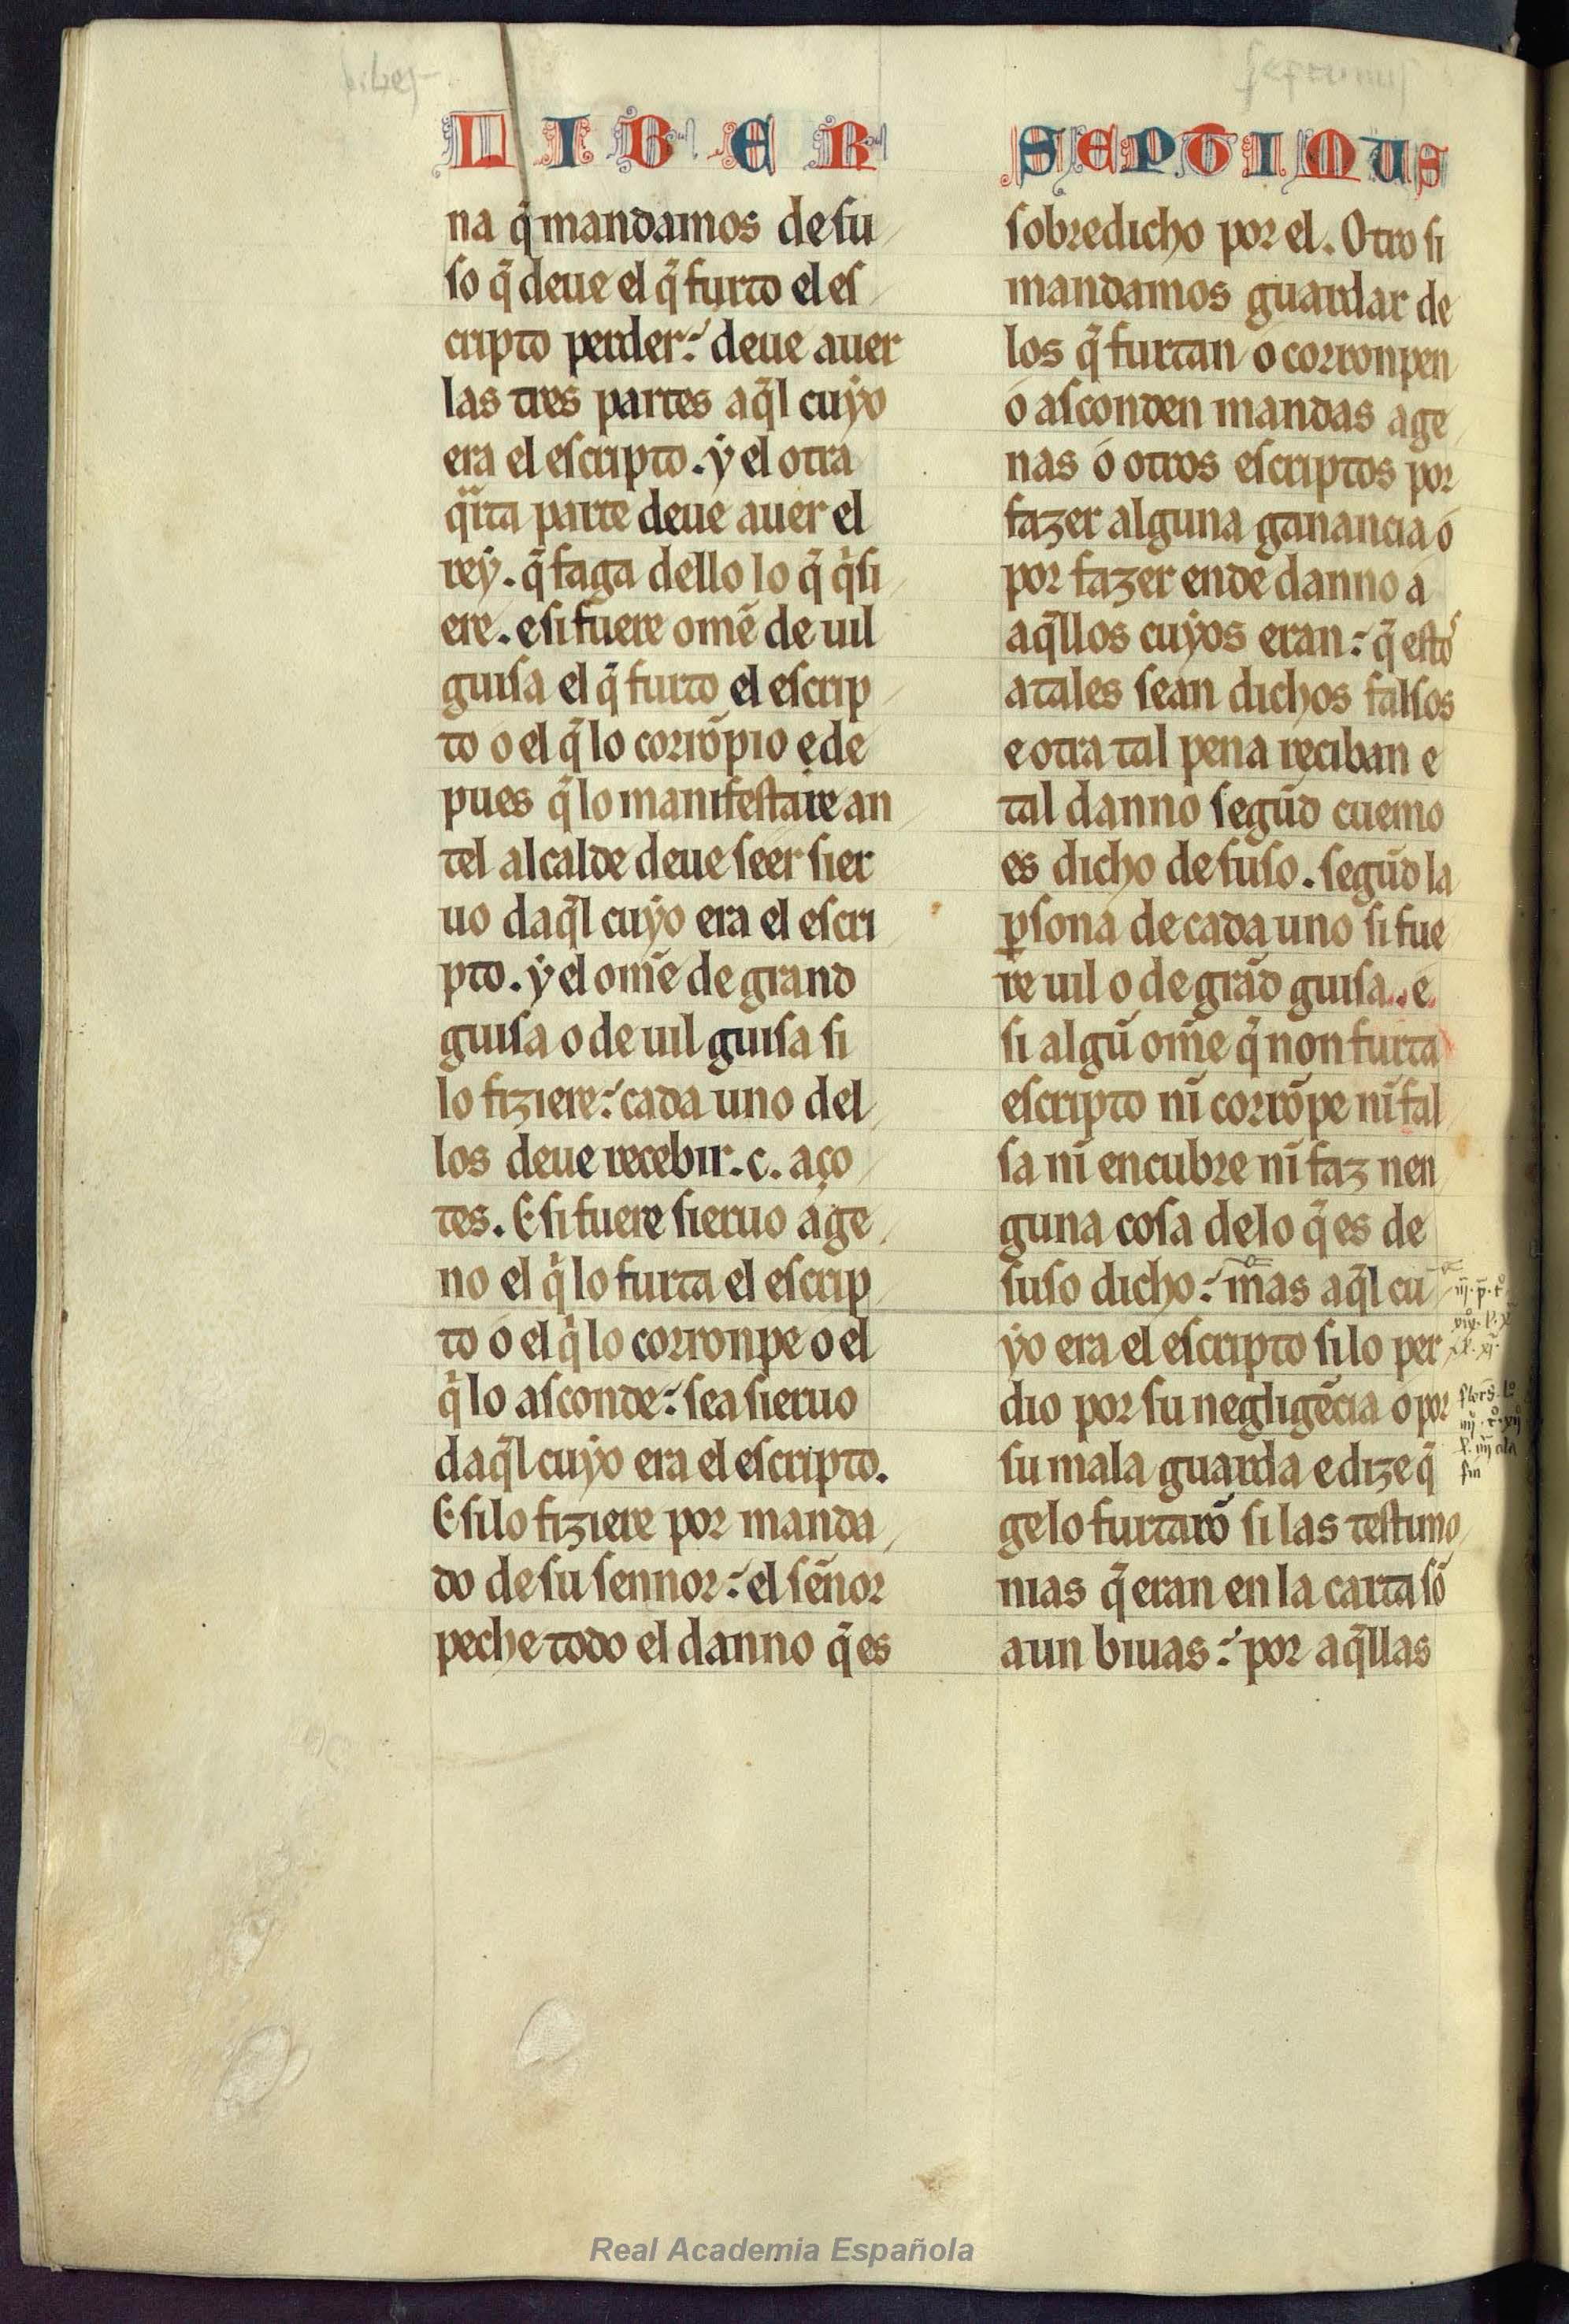 liber
septimus
LIBER
SEPTIMUS
na q̃ mandamos de su
so q̃ deue el q̃ furto el es
cripto perder: deue auer
las tres partes aq̃l cuẏo
era el escripto. ẏ el otra
q̈rta parte deue auer el
reẏ. q̃ faga dello lo q̃ q̇si
ere. e si fuere omẽ de uil
guisa el q̃ furto el escrip
to o el q̃ lo corrõpio e de
pues q̃ lo manifestare an
tel alcalde deue seer sier
uo daq̃l cuẏo era el escri
pto. ẏ el om̃e de grand
guisa o de uil guisa si
lo fiziere: cada uno del
los deue recebir .c. aço
tes. E si fuere sieruo age
no el q̇ lo furta el escrip
to o el q̇ lo corronpe o el
q̇ lo asconde: sea sieruo
daq̃l cuẏo era el escripto.
E si lo fiziere por manda
do de su sennor: el sẽnor
peche todo el danno q̃ es
sobredicho por el. Otro si
mandamos guardar de
los q̃ furtan o corronpen
o asconden mandas age
nas o otros escriptos por
fazer alguna ganancia o
por fazer ende danno a
aq̃llos cuẏos eran: q̃ estos
atales sean dichos falsos
e otra tal pena reciban e
tal danno segũd cuemo
es dicho de suso. segũd la
ꝑsona de cada uno si fue
re uil o de grãd guisa. e
si algũ om̃e q̃ non furta
escripto nĩ corrõpe nĩ fal
sa nĩ encubre nĩ faz nen
guna cosa delo q̃ es de
suso dicho: mas aq̃l cu
ẏo era el escripto si lo per
dio por su negligẽcia o por
su mala guarda e dize q̃
gelo furtarõ si las testimo
nias q̃ eran en la carta sõ
aun biuas: por aq̃llas
Real Academia Española